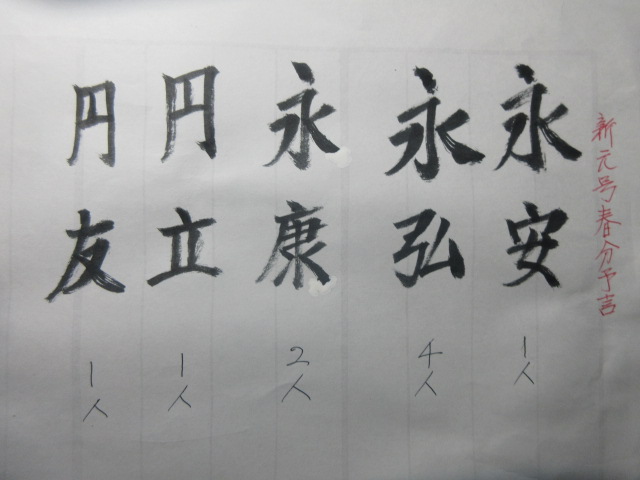 新元号春分予言
永安 1人
永弘 4人
永康 2人
円立 1人
円友 1人